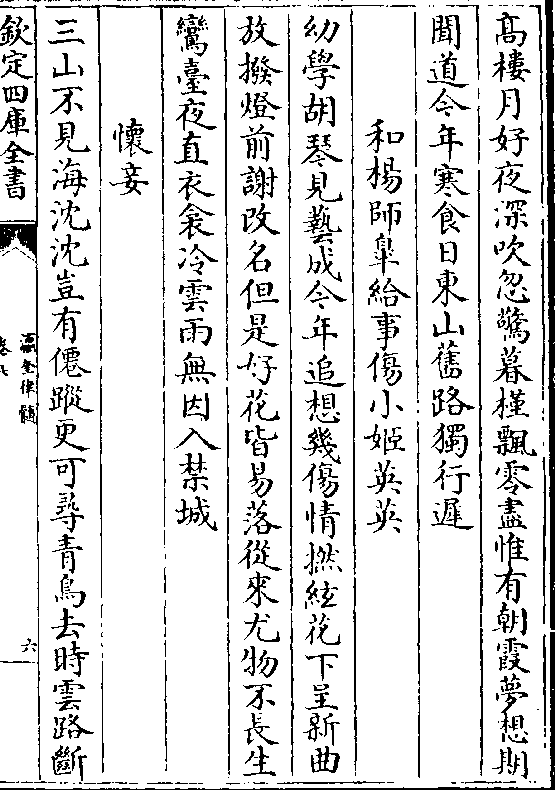 髙樓月好夜深吹忽驚暮槿飄零盡惟有朝霞夢想期
聞道今年寒食日東山舊路獨行遲
和楊師臯給事傷小姬英英
㓜學胡琴見藝成今年追想幾傷情撚絃花下呈新曲
放撥燈前謝改名但是好花皆易落從來尤物不長生
鸞臺夜直衣衾冷雲雨無因入禁城
懷妾
三山不見海沈沈豈有僊蹤更可尋青鳥去時雲路斷
欽定四庫全書
瀛奎律髓
六